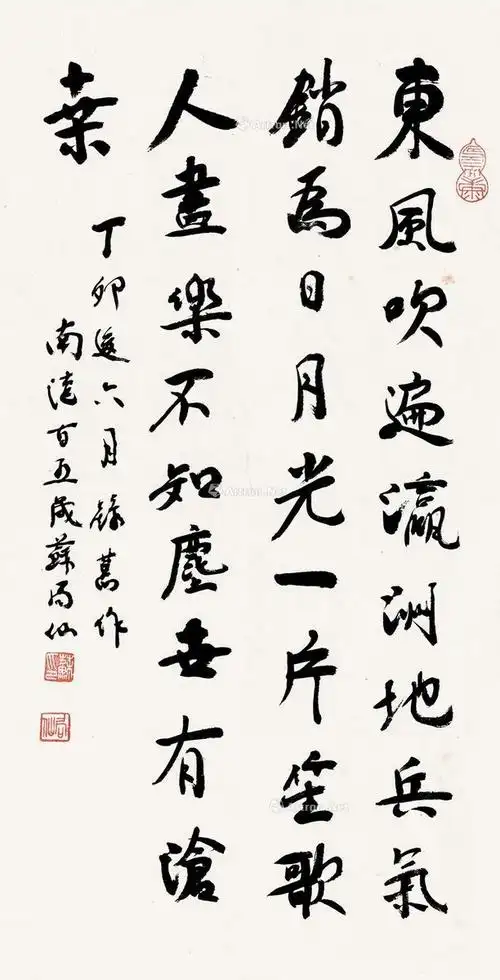 東風吹遍瀛洲地兵氣
銷為日月光一片笙歌
人盡樂不知塵世有滄
桑
丁卯六月錄舊作
南滙百五歲蘇局仙
Artron.Net